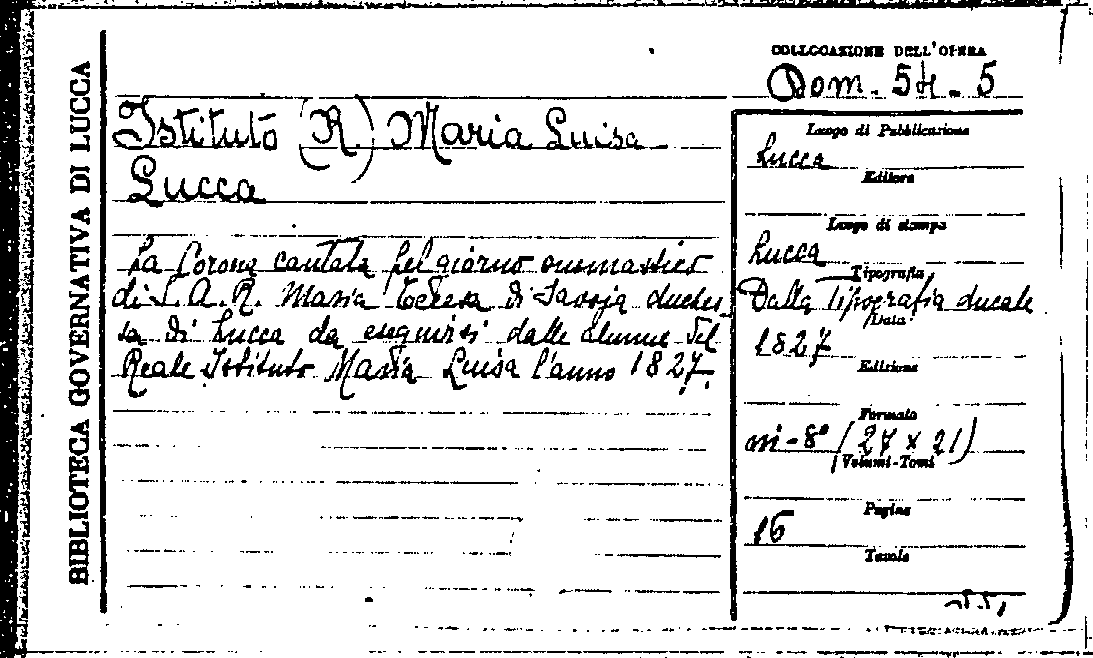 BIBLIOTECA GOVERNATIVA DI LUCCA
COLLOCAZIONE DELL'OPERA
Dom. 54. 5
Istituto (R.) Maria Luisa
Lucca
La Corona cantata pel giorno onomastico
di S. A. R. Maria Teresa di Savoja duches
sa di Lucca da eseguirsi dalle alunne del
Reale Istituto Maria Luisa l'anno 1827.
Luogo di Pubblicazione
Lucca
Editore
Luogo di stampa
Lucca
Tipografia
Dalla Tipografia ducale
Data
1827
Edizione
Formato
in-8° (27 x 21)
Volumi-Tomi
Pagine
16
Tavole